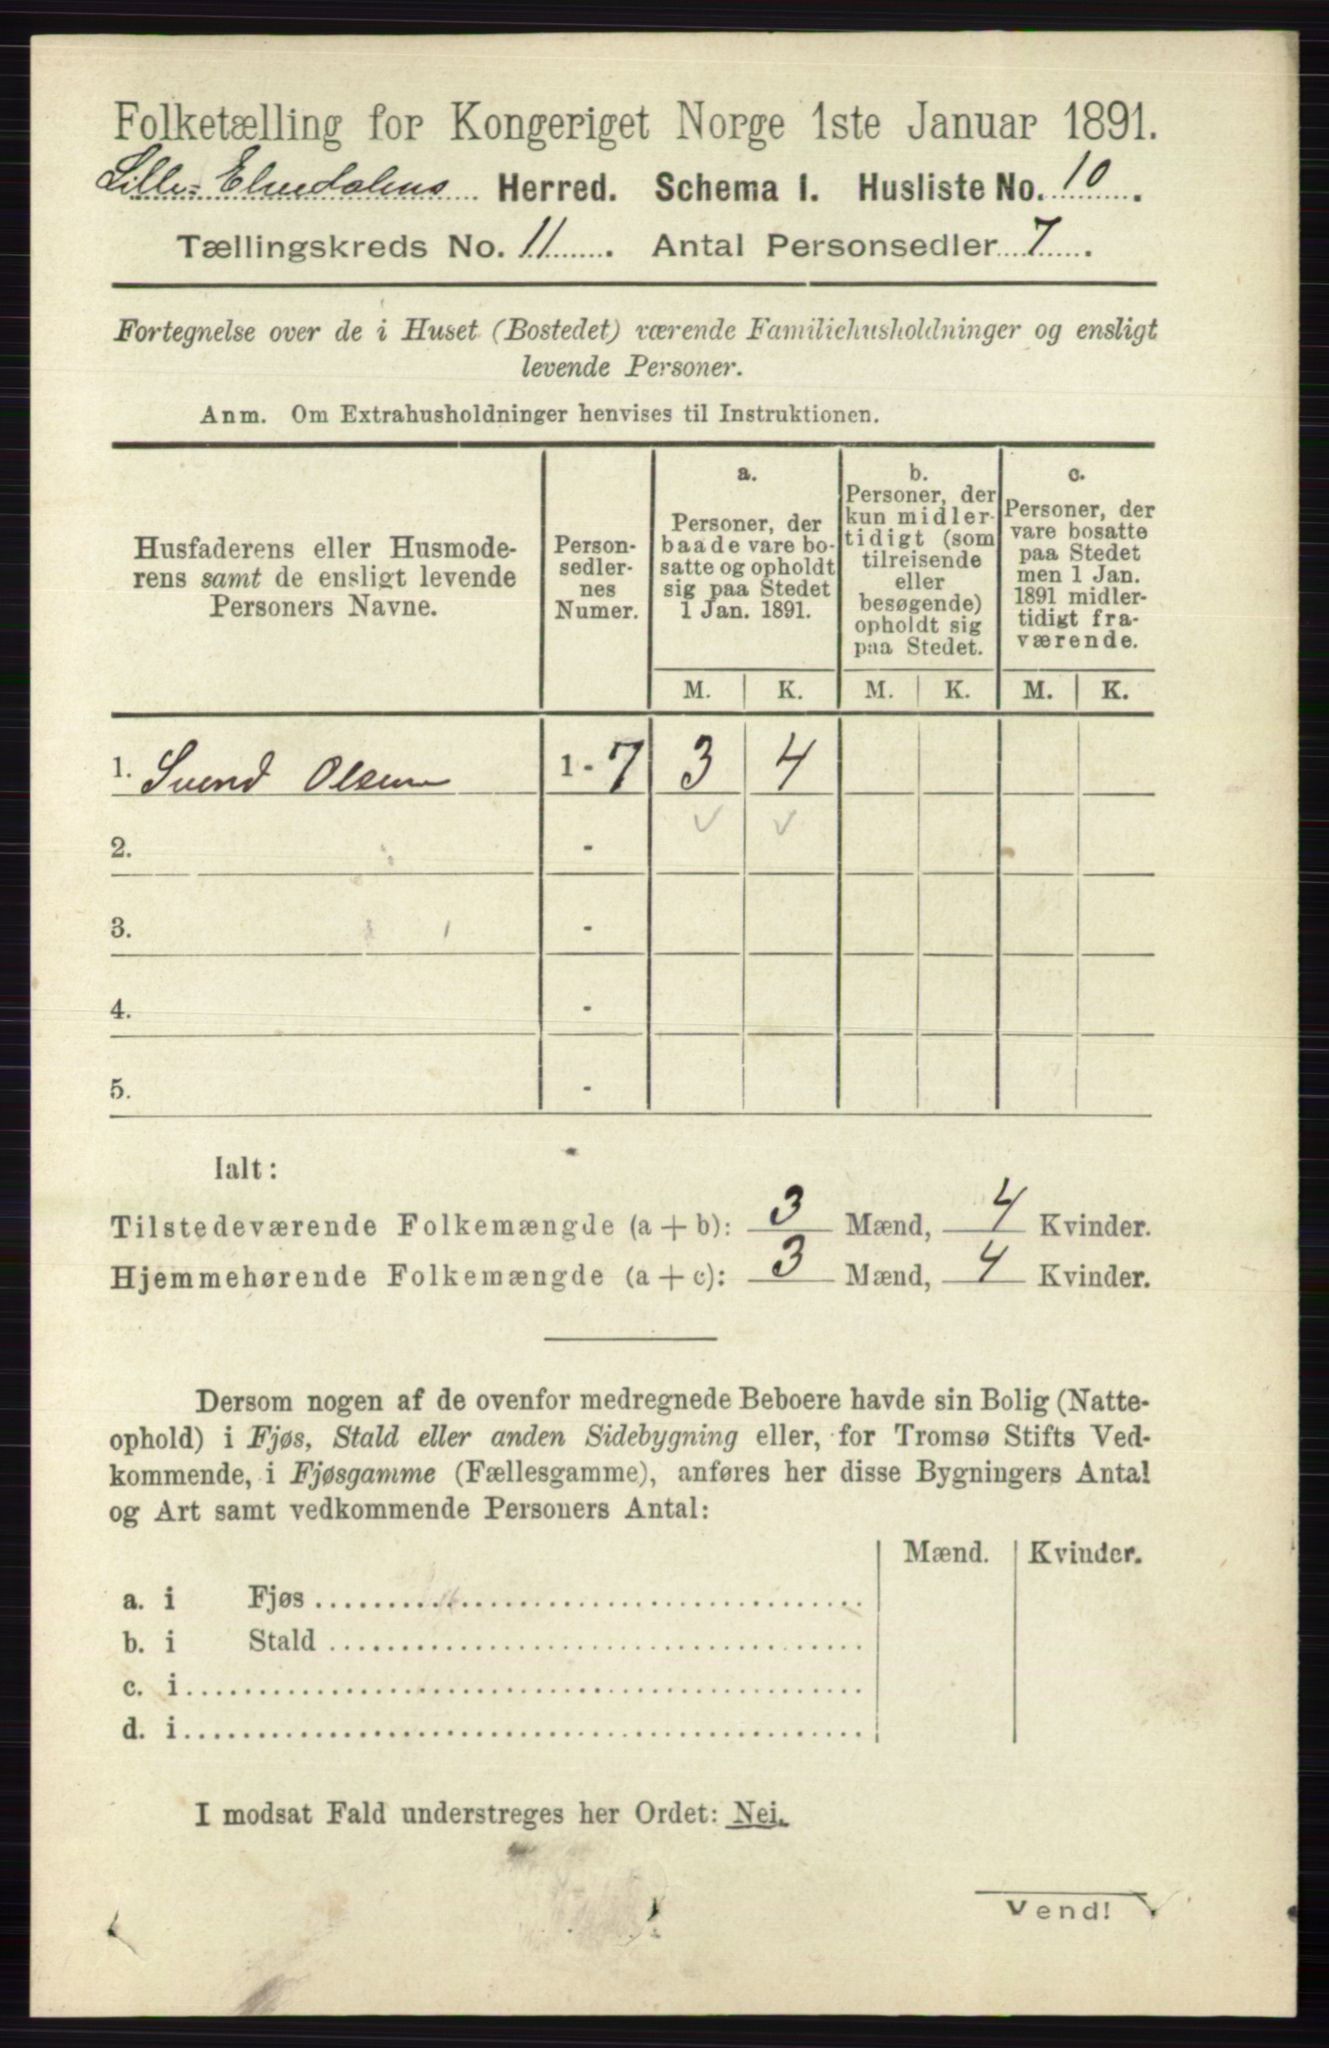 Folketælling for Kongeriget Norge 1ste Januar 1891.
Lille-Elvedalens Herred. Schema 1. Husliste No. 10.
Tællingskreds No. 11. Antal Personsedler 7.
Fortegnelse over de i Huset (Bostedet) værende Familiehusholdninger og ensligt
levende Personer.
Anm. Om Extrahusholdninger henvises til Instruktionen.
Husfaderens eller Husmode-
rens samt de ensligt levende
Personers Navne.
Person-
sedler-
nes
Numer.
a.
Personer, der
baade vare bo-
satte og opholdt
sig paa Stedet
1 Jan. 1891.
b.
Personer, der
kun midler-
tidigt (som
tilreisende
eller
besøgende)
opholdt sig
paa Stedet.
c.
Personer, der
vare bosatte
paa Stedet
men 1 Jan.
1891 midler-
tidigt fra-
værende.
M. K. M. K. M. K.
1. Svend Olsen 1 - 7 3 4
2. -
3. -
4. -
5. -
Ialt:
Tilstedeværende Folkemængde (a + b): 3 Mænd, 4 Kvinder.
Hjemmehørende Folkemængde (a + c): 3 Mænd, 4 Kvinder.
Dersom nogen af de ovenfor medregnede Beboere havde sin Bolig (Natte-
ophold) i Fjøs, Stald eller anden Sidebygning eller, for Tromsø Stifts Ved-
kommende, i Fjøsgamme (Fællesgamme), anføres her disse Bygningers Antal
og Art samt vedkommende Personers Antal:
Mænd. Kvinder.
a. i Fjøs
b. i Stald
c. i
d. i
I modsat Fald understreges her Ordet: Nei.
Vend!